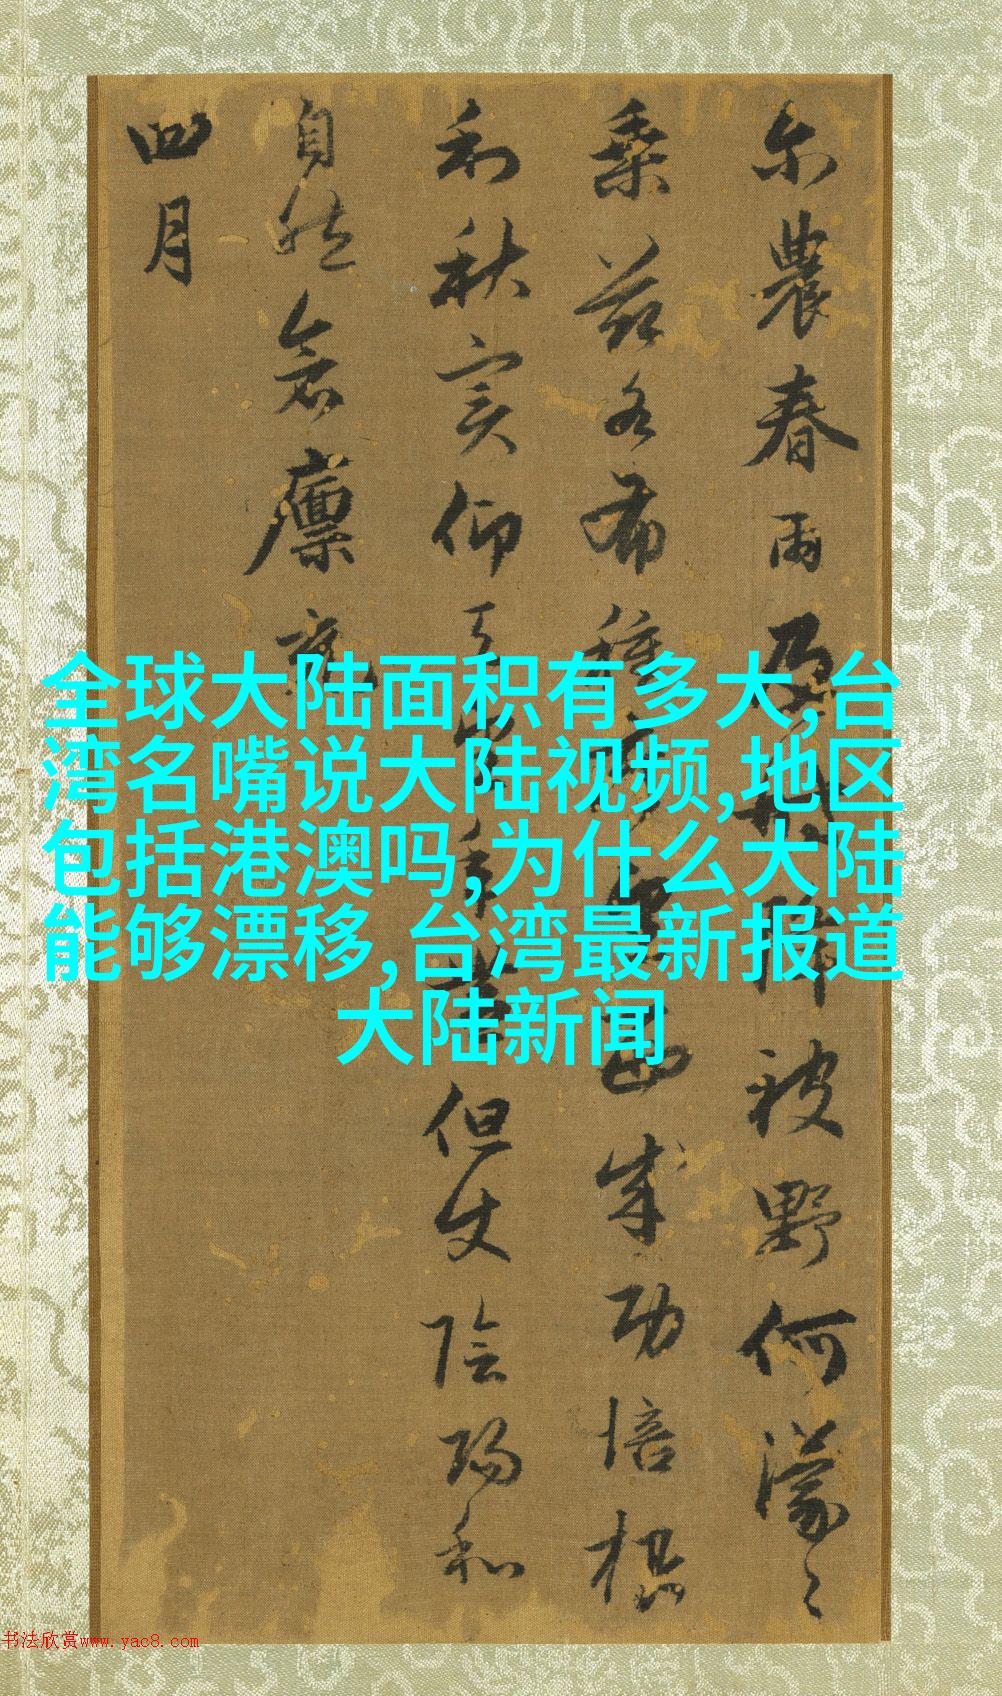 全球大陆面积有多大,台
湾名嘴说大陆视频,地区
包括港澳吗,为什么大陆
能够漂移,台湾最新报道
大陆新闻
尔農春雨及時降被野何濛〻
桑苗各布種
山成功倍根
利秋实仰
但使陰陽和
自然倉廪
四月
书法欣赏www.yac8.com